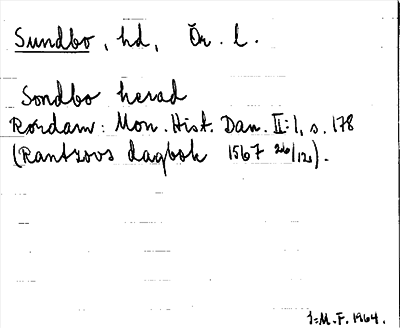 Sundbo, hd, Ör. l.
Sondbo herad
Rördam: Mon. Hist. Dan. II:1, s. 178
(Rantzovs dagbok 1567 26/12).
J-M. F. 1964.